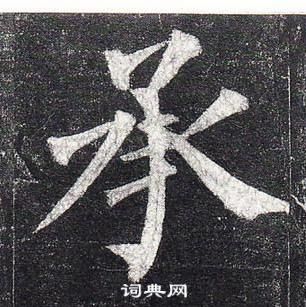 承
词典网